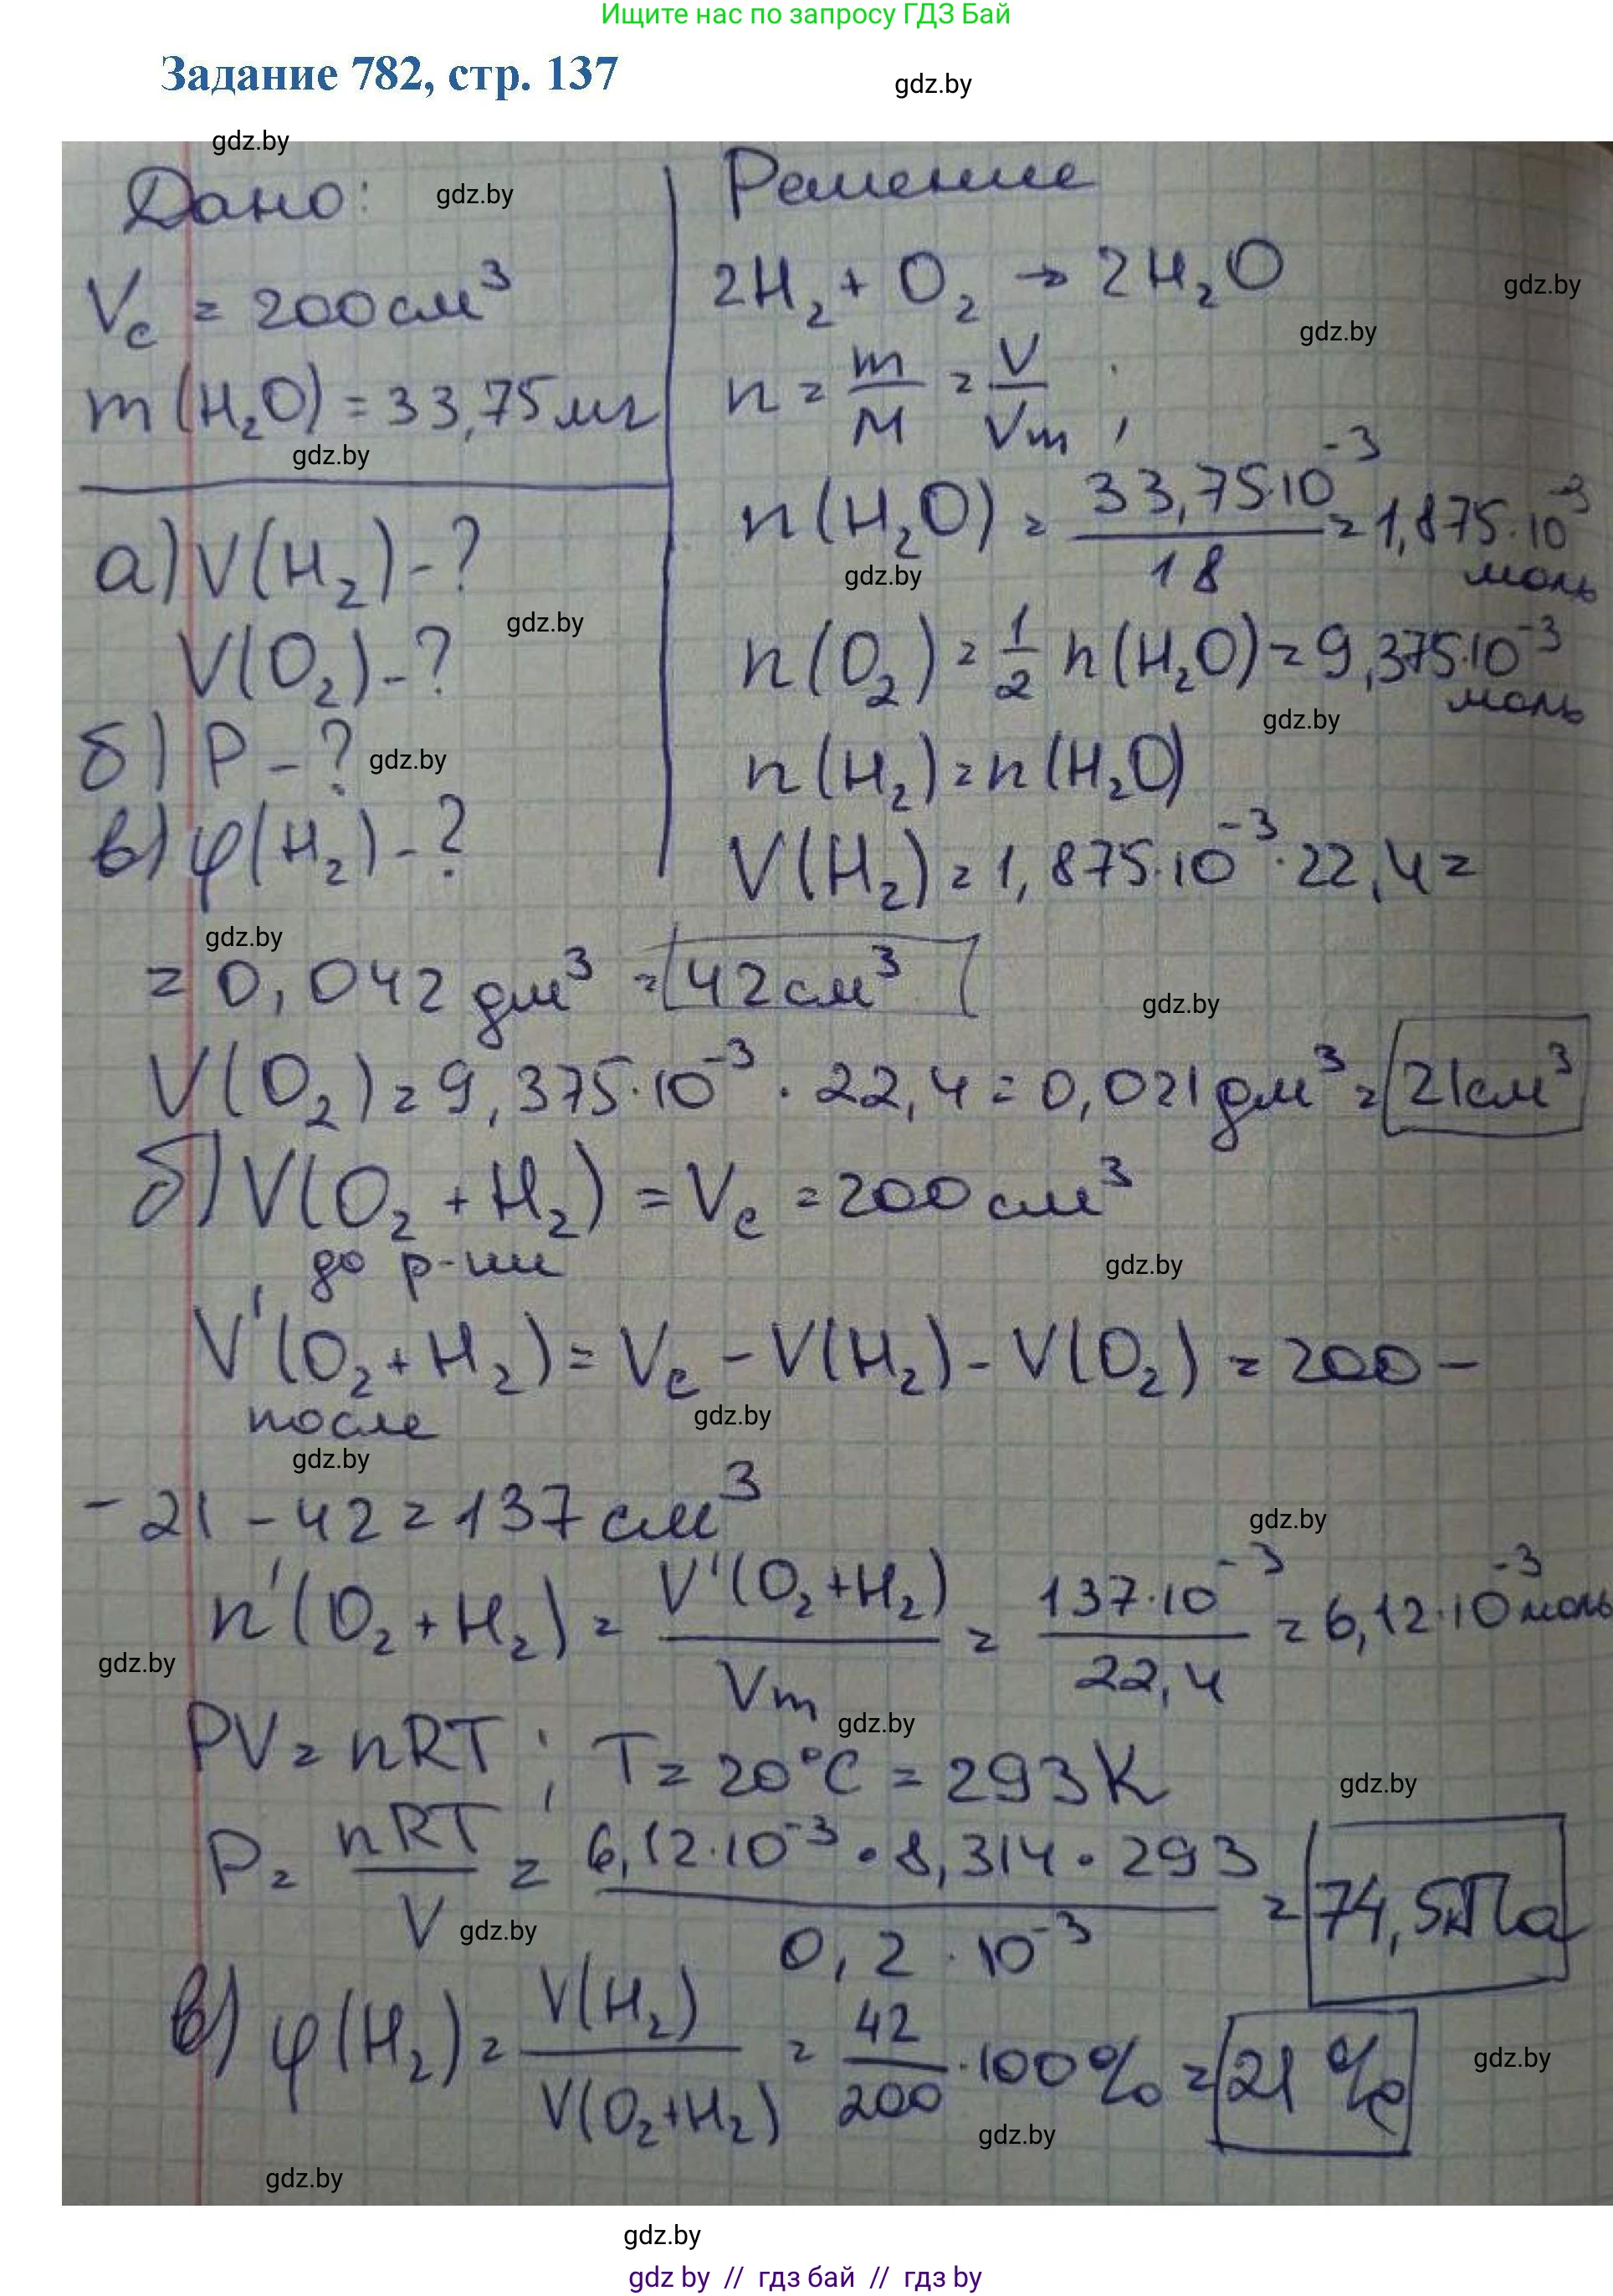 Ищите нас по запросу ГДЗ Бай
Задание 782, стр. 137
gdz.by
gdz.by
Дано:
gdz.by
Vс = 200 см³
m(H₂O) = 33,75 мг
gdz.by
а) V(H₂) - ?
gdz.by
V(O₂) - ?
б) P - ?
gdz.by
в) φ(H₂) - ?
Решение
2H₂ + O₂ → 2H₂O
gdz.by
gdz.by
n = m/M = V/Vm ;
n(H₂O) = 33,75·10⁻³/18 = 1,875·10⁻³ моль
gdz.by
n(O₂) = 1/2 n(H₂O) = 9,375·10⁻³ моль
gdz.by
n(H₂) = n(H₂O)
V(H₂) = 1,875·10⁻³·22,4 =
gdz.by
= 0,042 дм³ = 42 см³
gdz.by
V(O₂) = 9,375·10⁻³ · 22,4 = 0,021 дм³ = 21 см³
б) V(O₂ + H₂) = Vс = 200 см³
до р-ции
gdz.by
V'(O₂ + H₂) = Vс - V(H₂) - V(O₂) = 200 -
после
gdz.by
gdz.by
- 21 - 42 = 137 см³
gdz.by
n'(O₂ + H₂) = V'(O₂ + H₂)/Vm = 137·10⁻³/22,4 = 6,12·10⁻³ моль
gdz.by
gdz.by
PV = nRT ; T = 20°C = 293 K
gdz.by
P = nRT/V = 6,12·10⁻³ · 8,314 · 293/0,2 · 10⁻³ = 74,5 кПа
gdz.by
в) φ(H₂) = V(H₂)/V(O₂+H₂) = 42/200 ·100% = 21 %
gdz.by
gdz.by
gdz.by
gdz.by
gdz by // гдз бай // гдз by